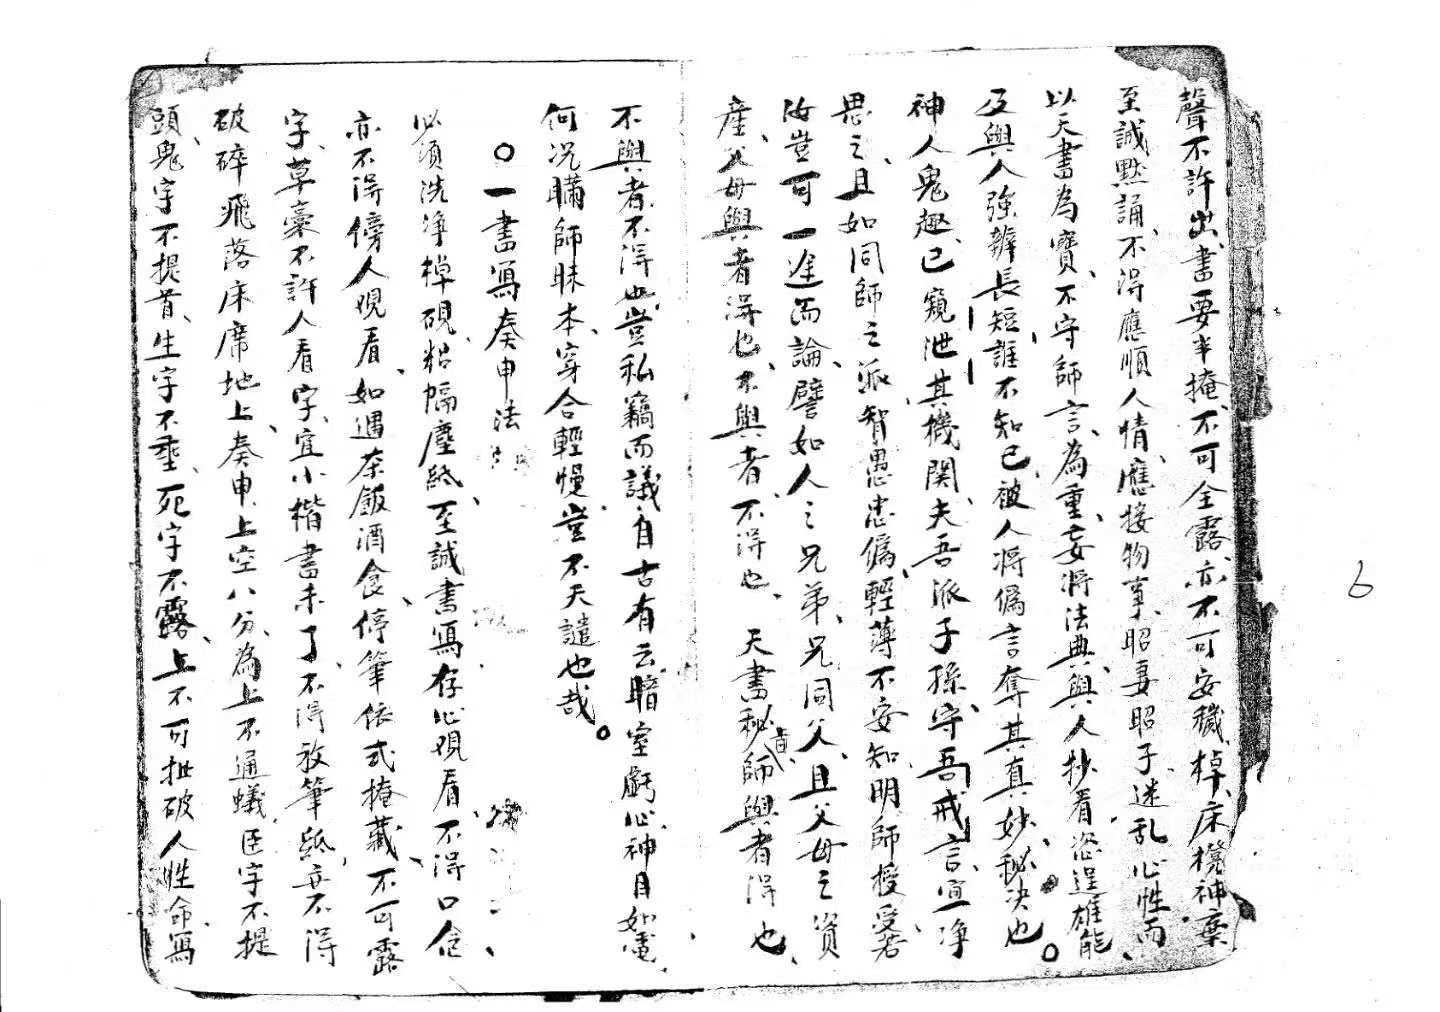 聲不許出、書要半掩、不可全露、亦不可安穢棹、床櫈神棄
至誠黙誦、不淂應順人情、應接物事、昭妻昭子、迷乱心性、而
以天書為寶、不守師言、為重、妄將法典與人抄看、逞雄能
及與人強辨長短、誰不知已、被人將偽言奪其真妙秘决也。
神人鬼趣、已窺泄其機関、夫吾派子孫、守吾戒言、宜净
思之、且如同師之派、智愚忠偽、輕薄不安、知明師授受者
汝豈可一途而論、譬如人之兄弟、兄同父、且父母之資
產、父母與者淂也、不與者、不淂也、天書秘旨、師與者得也、
不與者、不淂也、豈私竊而議、自古有云、暗室虧心、神目如電、
何况瞞師昧本、穿合輕慢、豈不天譴也哉。
○一書寫奏申法
必須洗净棹硯、粘幅塵紙、至誠書寫、存心覌看、不得口
亦不得傍人覌看、如遇茶飯酒食、停筆依式掩藏、不可露
字、草稾不許人看字、宜小楷書未了、不淂放筆紙、亦不淂
破碎飛落床席地上、奏申、上空八分、為上不通蟻、臣字不提
頭、鬼字不提首、生字不垂、死字不露、上不可扯破人性命、寫
6